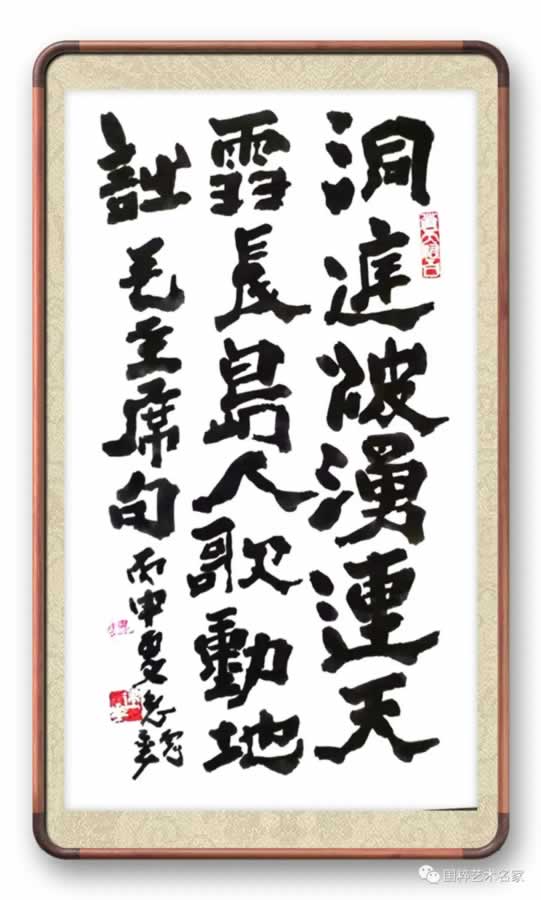 洞庭波湧連天
雪長島人歌動地
詩 毛主席句 丙申夏
国粹艺术名家